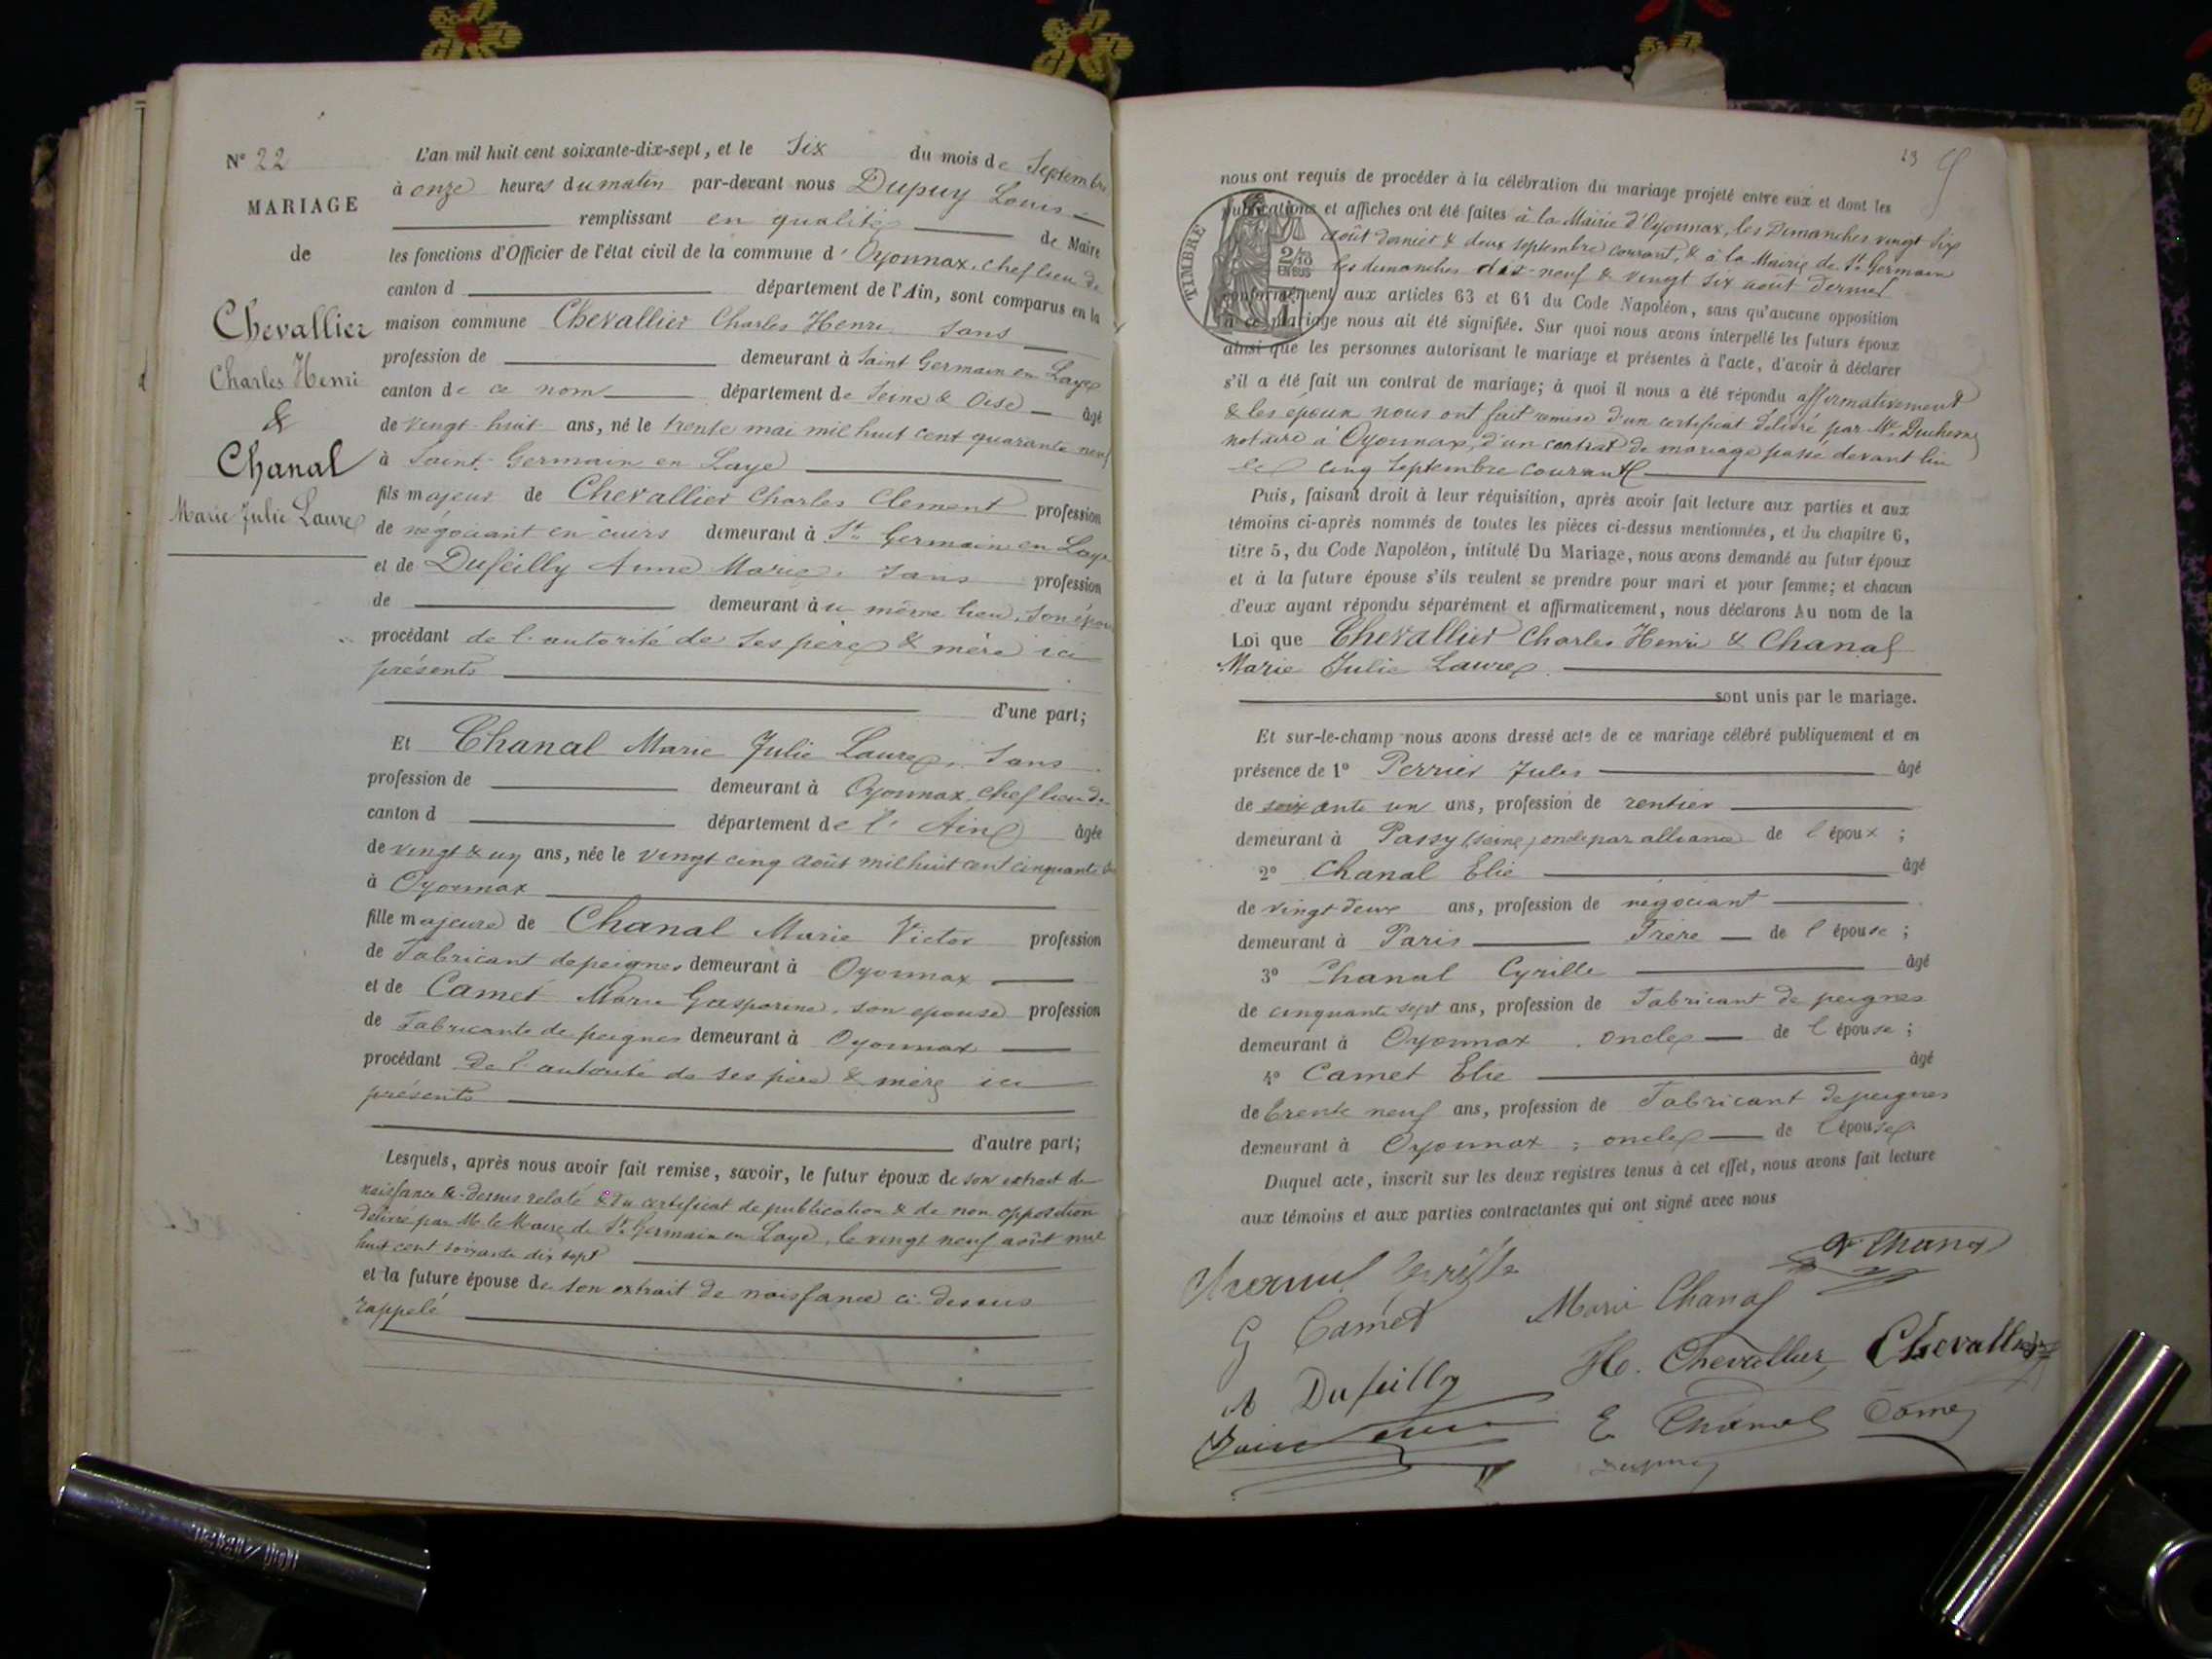 N° 22
MARIAGE
de
Chevallier
Charles Henri
&
Chanal
Marie Julie Laure
L'an mil huit cent soixante-dix-sept, et le Six du mois de Septembre
à onze heures du matin par-devant nous Dupuy Louis
remplissant en qualité de Maire
les fonctions d'Officier de l'état civil de la commune d'Oyonnax, chef lieu de
canton d département de l'Ain, sont comparus en la
maison commune Chevallier Charles Henri Sans
profession de demeurant à Saint Germain en Laye
canton de ce nom département de Seine & Oise âgé
de vingt-huit ans, né le trente mai mil huit cent quarante neuf
à Saint-Germain en Laye
fils majeur de Chevallier Charles Clement profession
de négociant en cuirs demeurant à St Germain en Laye
et de Dufeilly Anne Marie, sans profession
de demeurant à u même lieu, son épouse
procédant de l'autorité de ses père & mère ici
présents
d'une part;
Et Chanal Marie Julie Laure, Sans
profession de demeurant à Oyonnax, chef lieu de
canton d département de l'Ain âgée
de vingt & un ans, née le vingt cinq août mil huit cent cinquante
à Oyonnax
fille majeure de Chanal Marie Victor profession
de Fabricant de peignes demeurant à Oyonnax
et de Camet Marie Gasparine, son epouse profession
de Fabricante de peignes demeurant à Oyonnax
procédant de l'autorité de ses père & mère ici
présents
d'autre part;
Lesquels, après nous avoir fait remise, savoir, le futur époux de son extrait de
naissance ci-dessus relaté & du certificat de publication & de non opposition
délivré par Mr le Maire de St Germain en Laye, le vingt neuf août mil
huit cent soixante dix sept
et la future épouse de son extrait de naissance ci-dessus
rappelé
23
nous ont requis de procéder à la célébration du mariage projeté entre eux et dont les
publications et affiches ont été faites à la Mairie d'Oyonnax, les Dimanches vingt six
août dernier & deux septembre courant, & à la Mairie de St Germain
les dimanches dix-neuf & vingt six août dernier
conformément aux articles 63 et 64 du Code Napoléon, sans qu'aucune opposition
à ce mariage nous ait été signifiée. Sur quoi nous avons interpellé les futurs époux
TIMBRE
2/10
EN SUS
ainsi que les personnes autorisant le mariage et présentes à l'acte, d'avoir à déclarer
s'il a été fait un contrat de mariage; à quoi il nous a été répondu affirmativement
& les époux nous ont fait remise d'un certificat délivré par Me Duchesne
notaire à Oyonnax, d'un contrat de mariage passé devant lui
le cinq Septembre courant
Puis, faisant droit à leur réquisition, après avoir fait lecture aux parties et aux
témoins ci-après nommés de toutes les pièces ci-dessus mentionnées, et du chapitre 6,
titre 5, du Code Napoléon, intitulé Du Mariage, nous avons demandé au futur époux
et à la future épouse s'ils veulent se prendre pour mari et pour femme; et chacun
d'eux ayant répondu séparément et affirmativement, nous déclarons Au nom de la
Loi que Chevallier Charles Henri & Chanal
Marie Julie Laure
sont unis par le mariage.
Et sur-le-champ nous avons dressé acte de ce mariage célébré publiquement et en
présence de 1° Perrier Jules âgé
de soixante un ans, profession de rentier
demeurant à Passy (Seine) oncle par alliance de l'époux ;
2° Chanal Elie âgé
de vingt deux ans, profession de négociant
demeurant à Paris Frère de l'épouse ;
3° Chanal Cyrille âgé
de cinquante sept ans, profession de Fabricant de peignes
demeurant à Oyonnax, oncle de l'épouse ;
4° Camet Elie âgé
de trente neuf ans, profession de Fabricant de peignes
demeurant à Oyonnax ; oncle de l'épouse
Duquel acte, inscrit sur les deux registres tenus à cet effet, nous avons fait lecture
aux témoins et aux parties contractantes qui ont signé avec nous
V Chanal
G Camet Marie Chanal
H. Chevallier Chevallier
A Dufeilly
E Chanal Camet
Dupuy